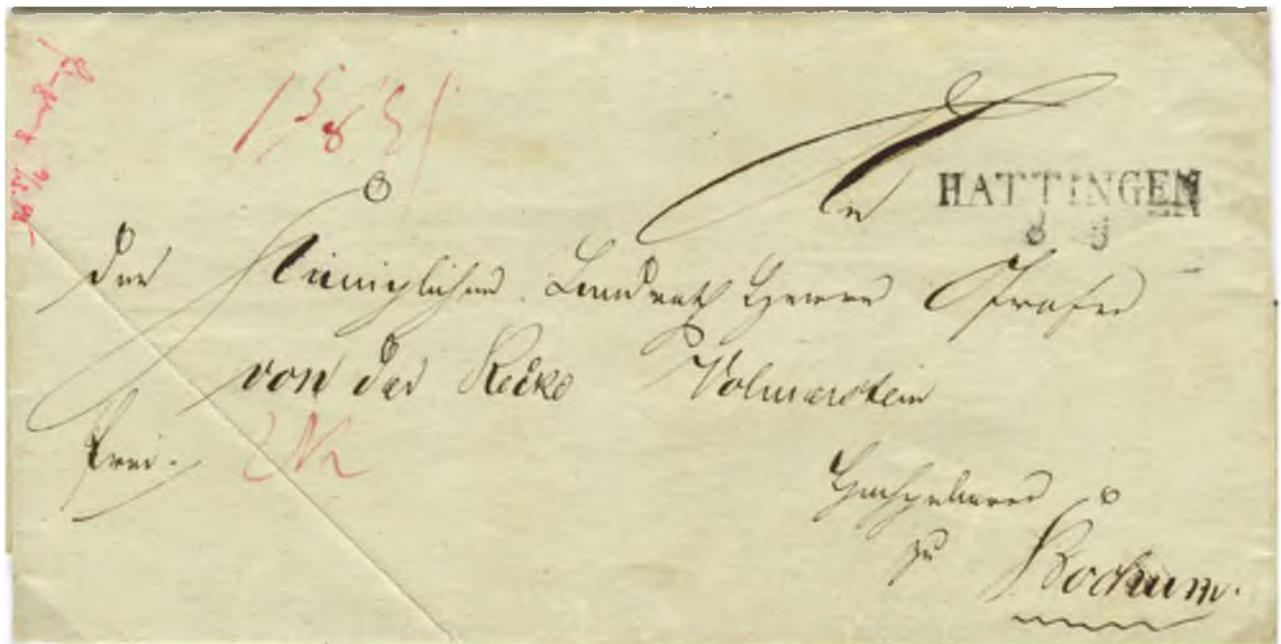 An
HATTINGEN
8 9
den Königlichen Landrath Herrn Grafen
von der Recke Volmerstein
frei.
Hochgeboren
zu
Bochum.